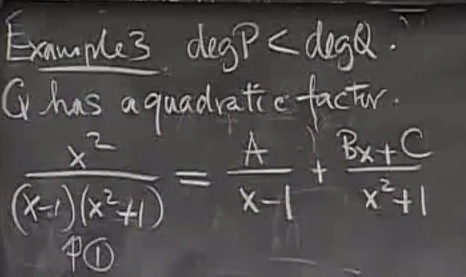 Example 3 deg P < deg Q.
Q has a quadratic factor.
x²/((x-1)(x²+1)) = A/(x-1) + (Bx+C)/(x²+1)
↑①